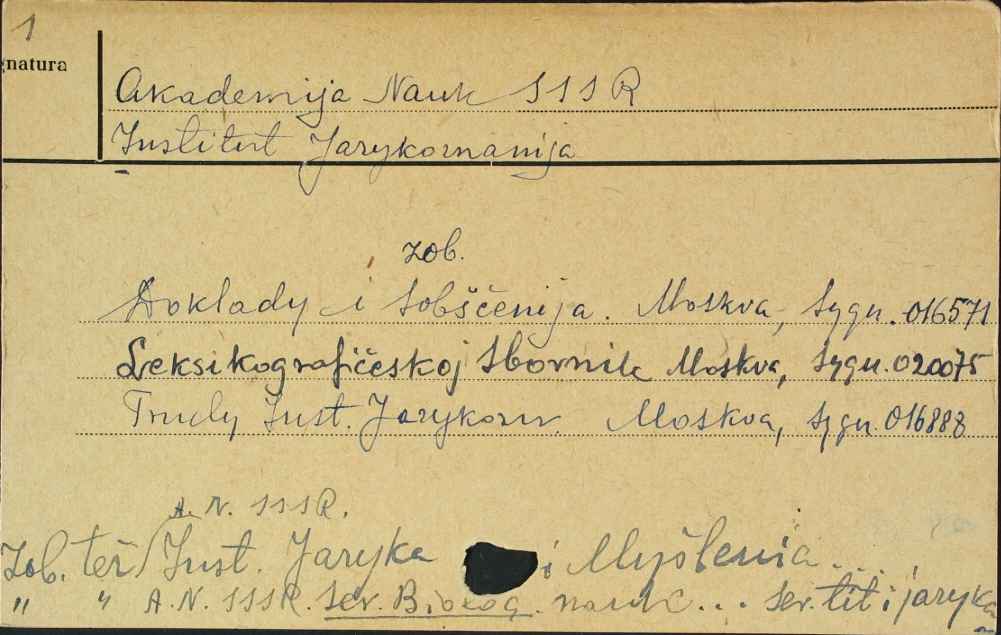 1
gnatura
Akademija Nauk SSSR
Institut Jazykoznanija
zob.
Doklady i Sobščenija. Moskva, Sygn. 016571
Leksikografičeskoj Sbornik Moskva, Sygn. 020075
Trudy Inst. Jazykozn. Moskva, Sygn. 016888
A. N. SSSR.
Zob. też Inst. Jazyka i Myšlenia ...
" " A.N. SSSR. Ser. Biolog. nauk... Ser. lit i jazyka